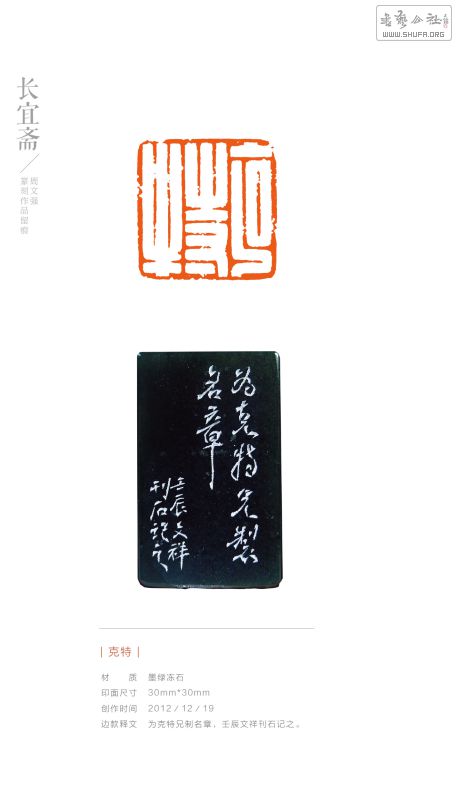 书艺公社
WWW.SHUFA.ORG
长宜斋
周文强
篆刻作品留痕
克特
为克特兄製
名章
壬辰文祥
刊石记之
| 克特 |
材 质 墨绿冻石
印面尺寸 30mm*30mm
创作时间 2012 / 12 / 19
边款释文 为克特兄制名章，壬辰文祥刊石记之。